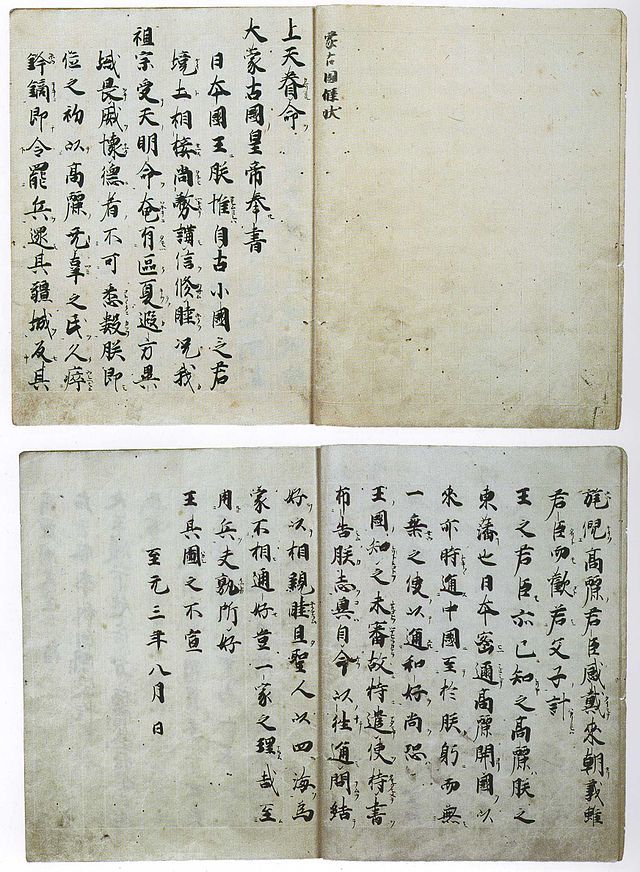 蒙古國牒状
上天眷命
大蒙古國皇帝奉書
日本國王朕惟自古小國之君
境土相接尚務講信修睦况我
祖宗受天明命奄有區夏遐方異
域畏威懷德者不可悉數朕即
位之初以高麗无辜之民久瘁
鋒鏑即令罷兵還其疆域反其
旄倪高麗君臣感戴來朝義雖
君臣而歡若父子計
王之君臣亦已知之高麗朕之
東藩也日本密邇高麗開國以
來亦時通中國至於朕躬而無
一乘之使以通和好尚恐
王國知之未審故特遣使持書
布告朕志冀自今以往通問結
好以相親睦且聖人以四海為
家不相通好豈一家之理哉至
用兵夫孰所好
王其圖之不宣
至元三年八月 日